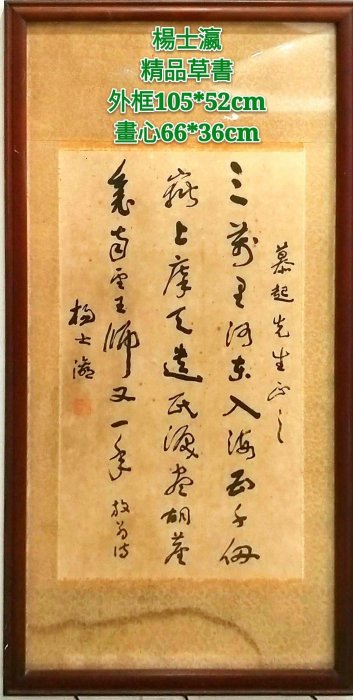 楊士瀛
精品草書
外框105*52cm
畫心66*36cm
慕起先生正之
三萬里河東入海五千仞
嶽上摩天遺民淚盡胡塵
裏南望王師又一年 放翁詩
楊士瀛